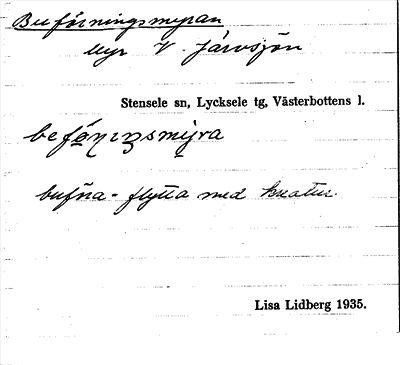 Buföringsmyran
Myr V. Järvsjön
Stensele sn, Lycksele tg, Västerbottens l.
buföra - flytta med kreatur.
Lisa Lidberg 1935.